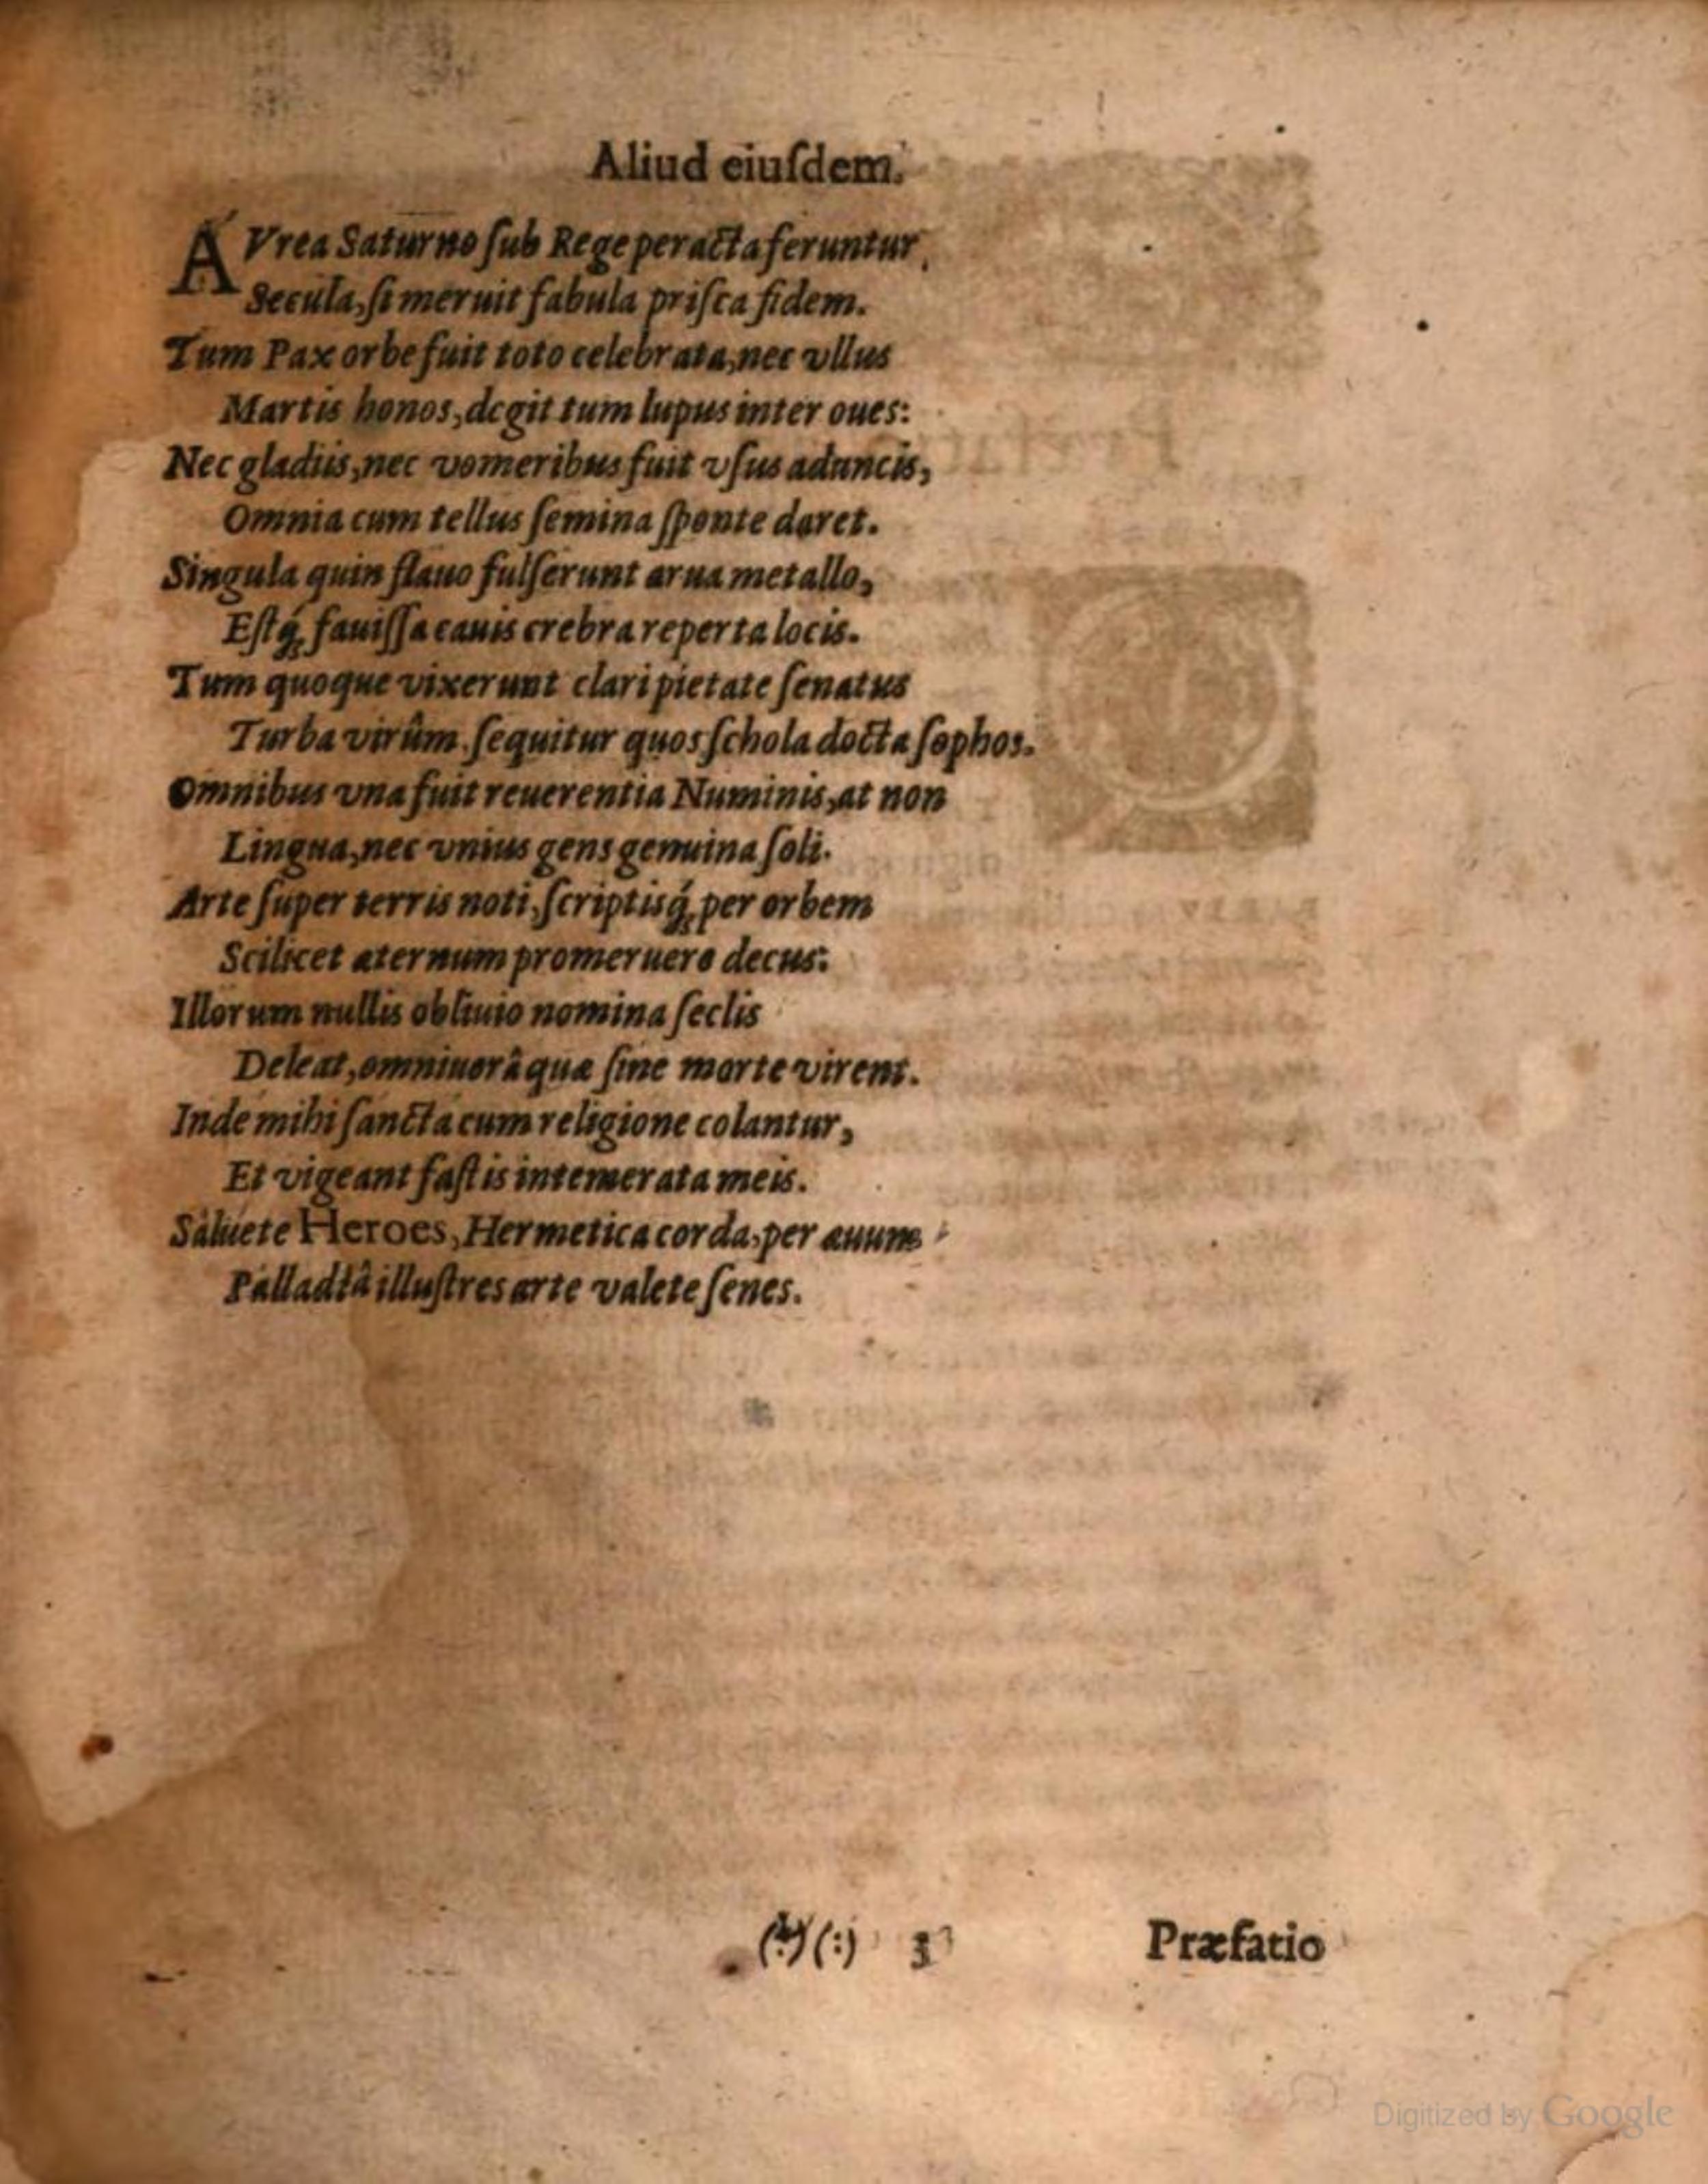 Aliud eiuſdem.
AVrea Saturno ſub Rege peracta feruntur,
Secula, ſi meruit fabula priſca fidem.
Tum Pax orbe fuit toto celebrata, nec vllus
Martis honos, degit tum lupus inter oues:
Nec gladiis, nec vomeribus fuit vſus aduncis,
Omnia cum tellus ſemina ſponte daret.
Singula quin flauo fulſerunt arua metallo,
Eſtq́; fauiſſa cauis crebra reperta locis.
Tum quoque vixerunt clari pietate ſenatus
Turba virûm ſequitur quos ſchola docta ſophos.
Omnibus vna fuit reuerentia Numinis, at non
Lingua, nec vnius gens genuina ſoli.
Arte ſuper terris noti, ſcriptisq́; per orbem
Scilicet æternum promeruere decus:
Illorum nullis obliuio nomina ſeclis
Deleat, omniuorâ quæ ſine morte virent.
Inde mihi ſancta cum religione colantur,
Et vigeant faſtis intemerata meis.
Saluete Heroes, Hermetica corda, per æuum
Palladiâ illuſtres arte valete ſenes.
(:)(:) 3 Præfatio
Digitized by Google